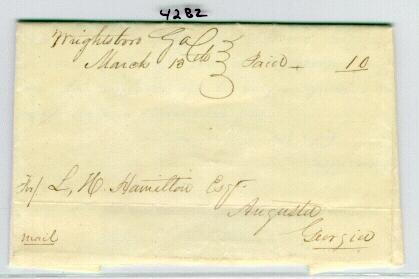 4282
Wrightsboro Ga
March 13 Paid 10
For/ L. H. Hamilton Esqr.
Augusta
mail Georgia